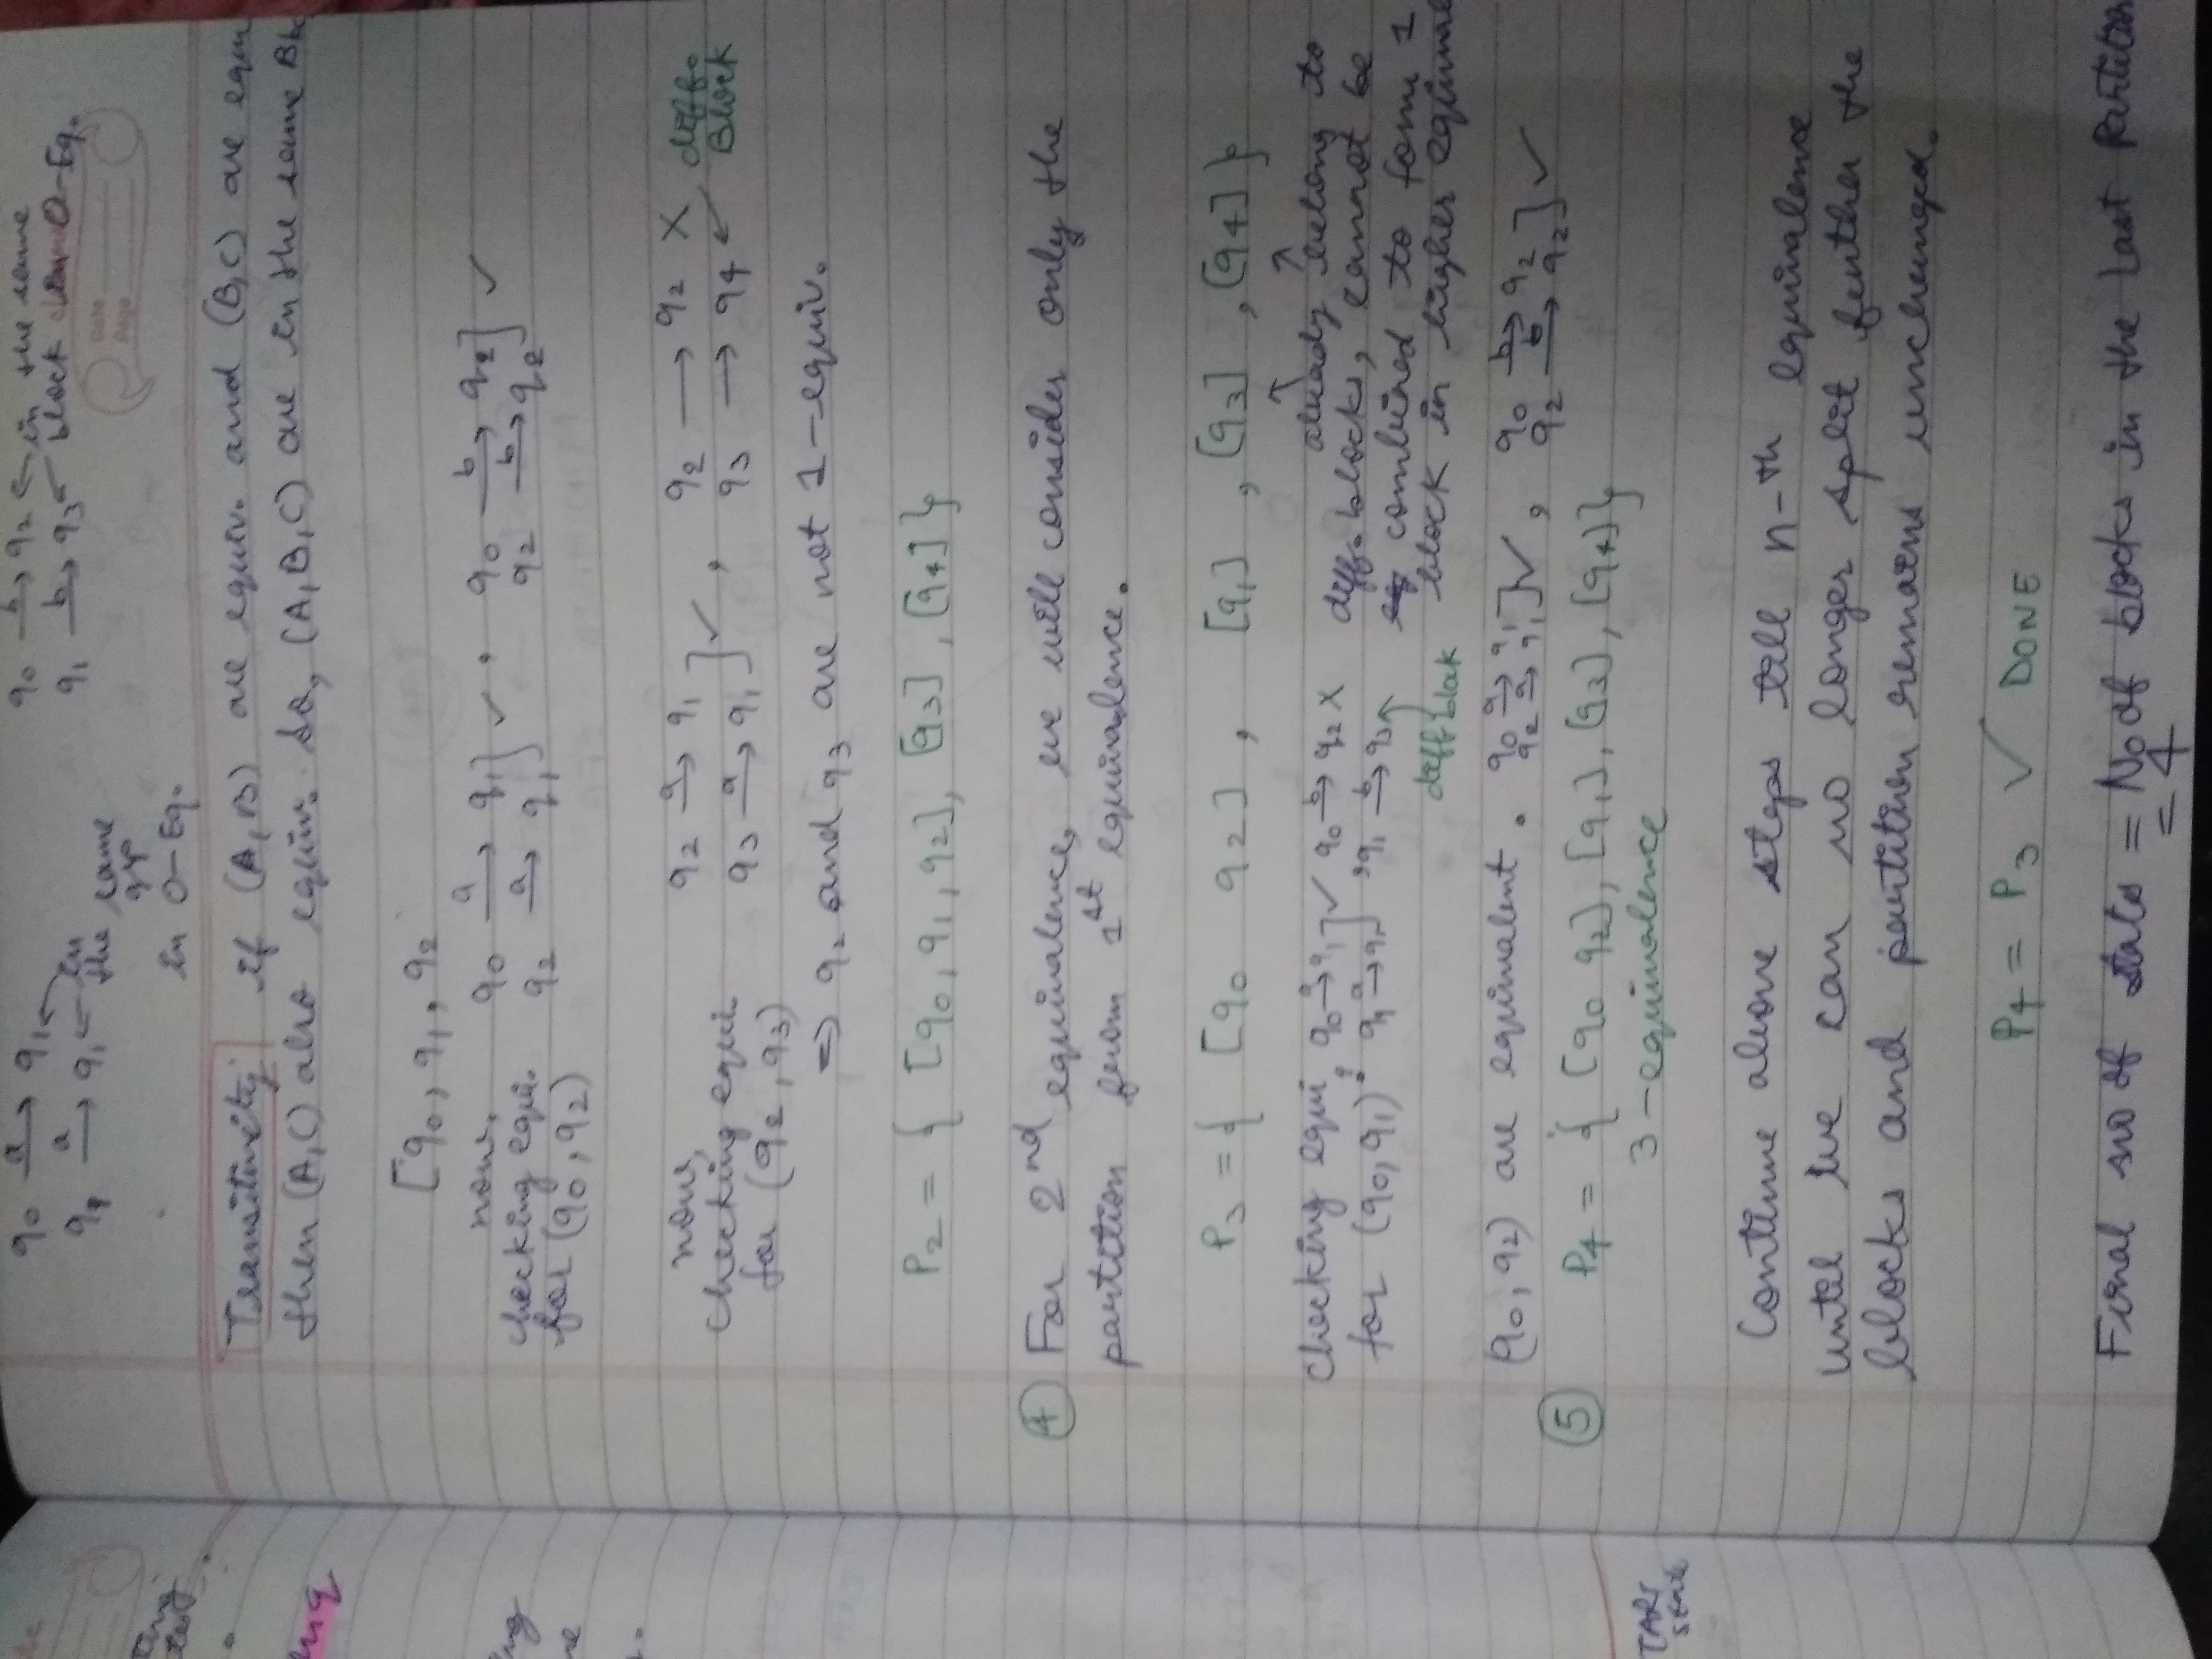 q0 a→ q1
q1 a→ q1 ← in the same grp in 0-Eq.
q0 b→ q2 ← in the same
q1 b→ q3 ← block 0-Eq.
Date
Page
Transitivity if (A,B) are equiv. and (B,C) are equiv
then (A,C) also equiv. So, (A,B,C) are in the same Blo
[q0, q1, q2
now,
checking equi. q0 a→ q1 ] ✓ , q0 b→ q2 ] ✓
for (q0, q2) q2 a→ q1 q2 b→ q2
now,
checking equi. q2 a→ q1 ] ✓ , q2 → q2 X diff.
for (q2, q3) q3 a→ q1 q3 → q4 ↙ Block
⇒ q2 and q3 are not 1-equiv.
P2 = { [q0, q1, q2], [q3], [q4] }
④ For 2nd equivalence, we will consider only the
partition from 1st equivalence.
P3 = { [q0 q2] , [q1] , [q3] , [q4] }
checking equi q0 a→ q1 ] ✓ q0 b→ q2 X
for (q0, q1): q1 a→ q1 , q1 b→ q3
diff block
already belong to
diff. blocks, cannot be
combined to form 1
block in higher equivalence
(q0, q2) are equivalent. q0 a→ q1 ] ✓ , q0 b→ q2 ] ✓
q2 a→ q1 q2 b→ q2
⑤ P4 = { [q0 q2], [q1], [q3], [q4] }
3-equivalence
Continue above steps till n-th equivalence
until we can no longer split further the
blocks and partition remains unchanged.
P4 = P3 ✓ DONE
Final no of states = No of blocks in the last Partition
= 4
TART
state